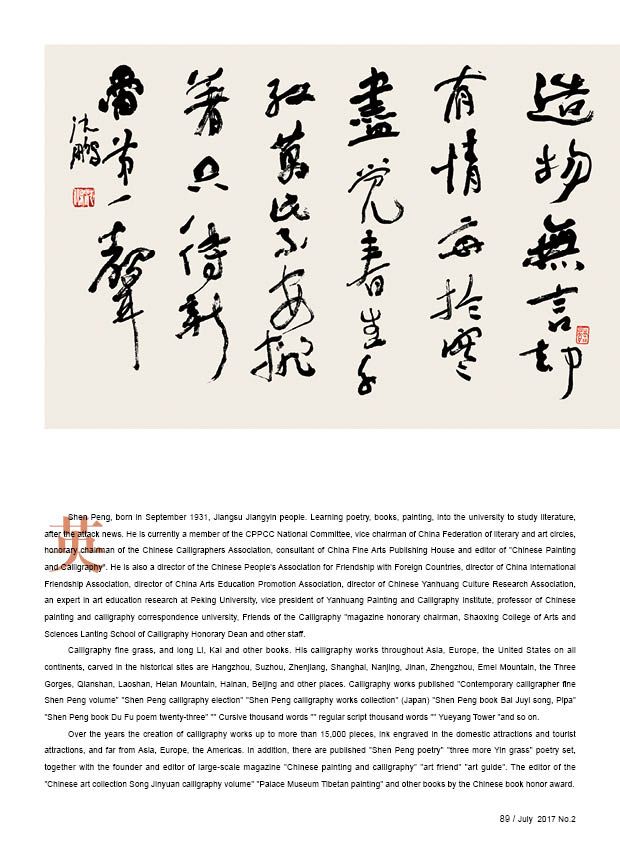 造物無言却
有情每於寒
盡覺春生千
红萬紫安排
著只待新
雷第一聲
沈鹏
英
Shen Peng, born in September 1931, Jiangsu Jiangyin people. Learning poetry, books, painting, into the university to study literature,
after the attack news. He is currently a member of the CPPCC National Committee, vice chairman of China Federation of literary and art circles,
honorary chairman of the Chinese Calligraphers Association, consultant of China Fine Arts Publishing House and editor of "Chinese Painting
and Calligraphy". He is also a director of the Chinese People's Association for Friendship with Foreign Countries, director of China International
Friendship Association, director of China Arts Education Promotion Association, director of Chinese Yanhuang Culture Research Association,
an expert in art education research at Peking University, vice president of Yanhuang Painting and Calligraphy Institute, professor of Chinese
painting and calligraphy correspondence university, Friends of the Calligraphy "magazine honorary chairman, Shaoxing College of Arts and
Sciences Lanting School of Calligraphy Honorary Dean and other staff.
Calligraphy fine grass, and long Li, Kai and other books. His calligraphy works throughout Asia, Europe, the United States on all
continents, carved in the historical sites are Hangzhou, Suzhou, Zhenjiang, Shanghai, Nanjing, Jinan, Zhengzhou, Emei Mountain, the Three
Gorges, Qianshan, Laoshan, Helan Mountain, Hainan, Beijing and other places. Calligraphy works published "Contemporary calligrapher fine
Shen Peng volume" "Shen Peng calligraphy election" "Shen Peng calligraphy works collection" (Japan) "Shen Peng book Bai Juyi song, Pipa"
"Shen Peng book Du Fu poem twenty-three" "" Cursive thousand words "" regular script thousand words "" Yueyang Tower "and so on.
Over the years the creation of calligraphy works up to more than 15,000 pieces, ink engraved in the domestic attractions and tourist
attractions, and far from Asia, Europe, the Americas. In addition, there are published "Shen Peng poetry" "three more Yin grass" poetry set,
together with the founder and editor of large-scale magazine "Chinese painting and calligraphy" "art friend" "art guide". The editor of the
"Chinese art collection Song Jinyuan calligraphy volume" "Palace Museum Tibetan painting" and other books by the Chinese book honor award.
89 / July 2017 No.2